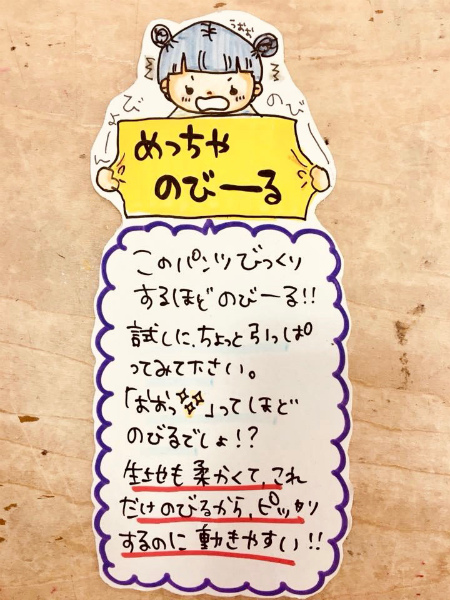 うおお
のびーー
びよーーん
めっちゃ
のびーる
このパンツびっくり
するほどのびーる!!
試しに、ちょっと引っぱ
ってみて下さい。
「おおっ✨」ってほど
のびるでしょ!?
生地も柔かくて、これ
だけのびるから、ピッタリ
するのに動きやすい!!